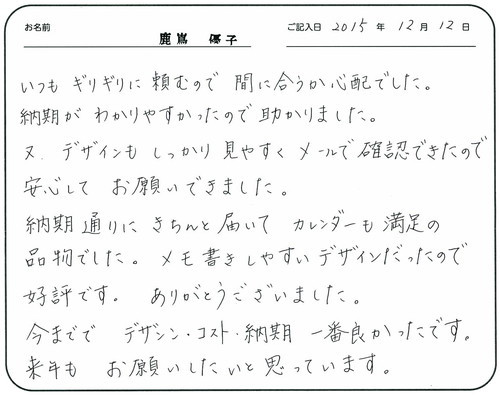 お名前 鹿嶌 優子 ご記入日 2015 年 12 月 12 日
いつも ギリギリに 頼むので 間に合うか心配でした。
納期が わかりやすかったので 助かりました。
又、デザインも しっかり 見やすく メールで 確認できたので
安心して お願いできました。
納期通りに きちんと届いて カレンダーも 満足の
品物でした。メモ書きしやすいデザインだったので
好評です。 ありがとうございました。
今までで デザシン・コスト・納期 一番良かったです。
来年も お願いしたいと思っています。